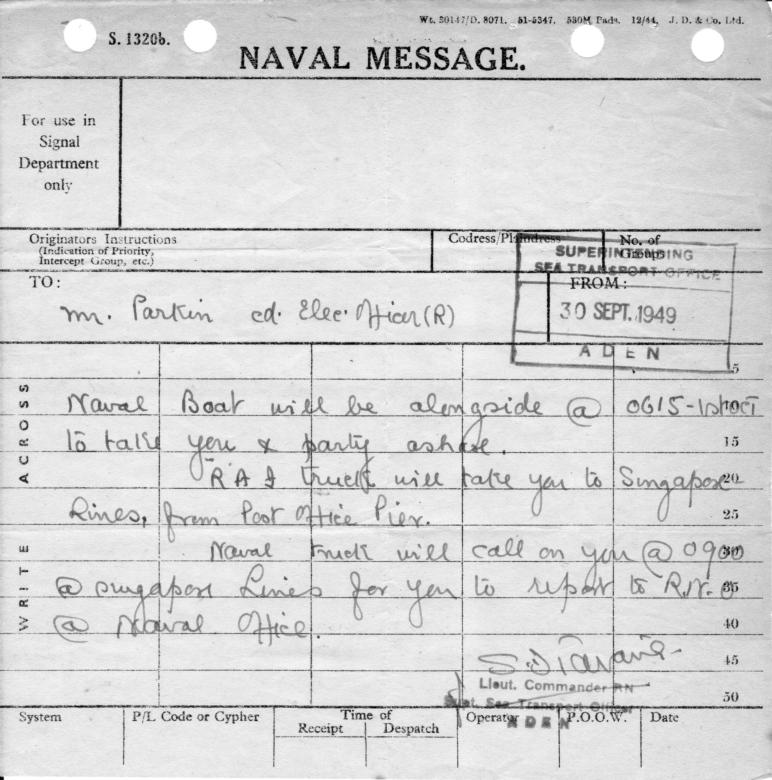 Wt. 30147/D. 8071. 51-5347. 530M Pads. 12/44, J. D. & Co. Ltd.
S. 1320b.
NAVAL MESSAGE.
For use in
Signal
Department
only
Originators Instructions
(Indication of Priority,
Intercept Group, etc.)
Codress/Plaindress
No. of
Groups
SUPERINTENDING
SEA TRANSPORT OFFICE
30 SEPT. 1949
ADEN
TO:
FROM:
Mr. Parkin cd. Elec. Officer (R)
WRITE ACROSS
5
Naval Boat will be alongside @ 0615-1st OCT
10
to take you & party ashore.
15
R A F truck will take you to Singapore
20
Lines, from Post Office Pier.
25
Naval truck will call on you @ 0900
30
@ Singapore Lines for you to report to R.N.O
35
@ Naval Office.
40
45
Lieut. Commander RN
Supt. Sea Transport Officer
ADEN
50
System
P/L Code or Cypher
Time of
Receipt
Despatch
Operator
P.O.O.W.
Date